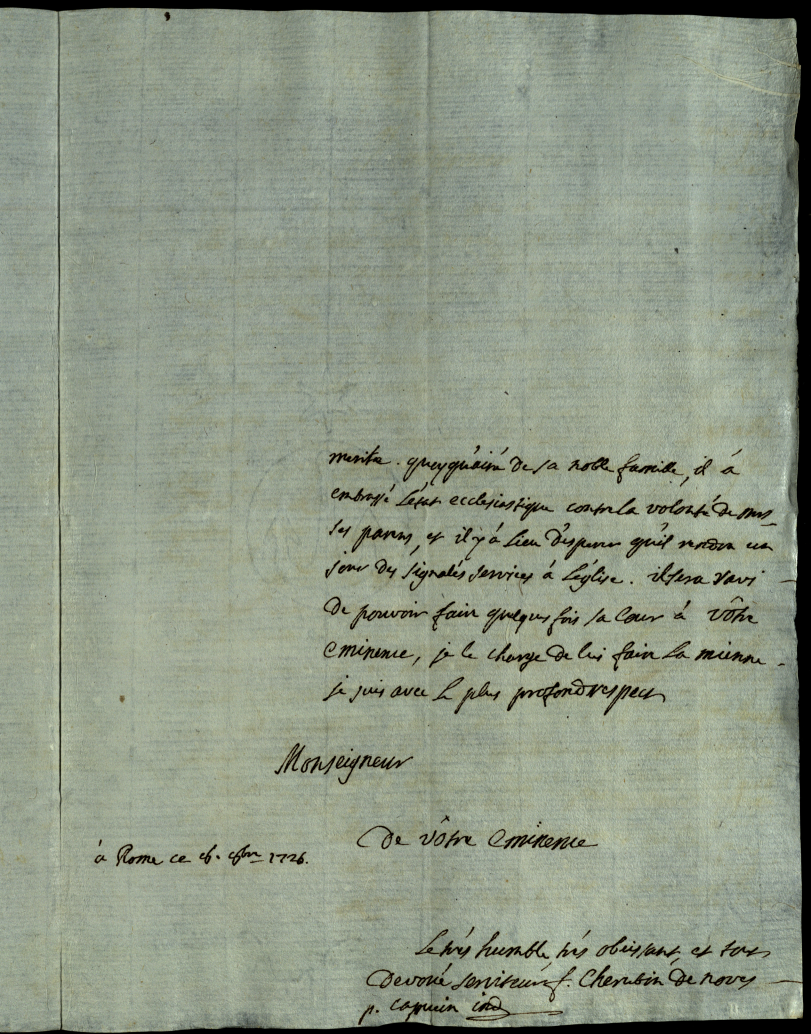 merite. quoyqu'ainé de sa noble famille, il á
embrassé l'état ecclesiastique contre la volonté de tous
ses parens, et il y á lieu d'esperer qu'il rendra un
jour des signalés services á L'église. il sera ravi
de pouvoir faire quelques fois sa Cour á vôtre
Eminence, je le charge de lui faire la mienne.
je suis avec le plus profond respect
Monseigneur
De vôtre Eminence
á Rome ce 1726.
Le trés humble, trés obeissant, et tout
Devoué serviteur f. Cherubin de noves
p. capucin ind